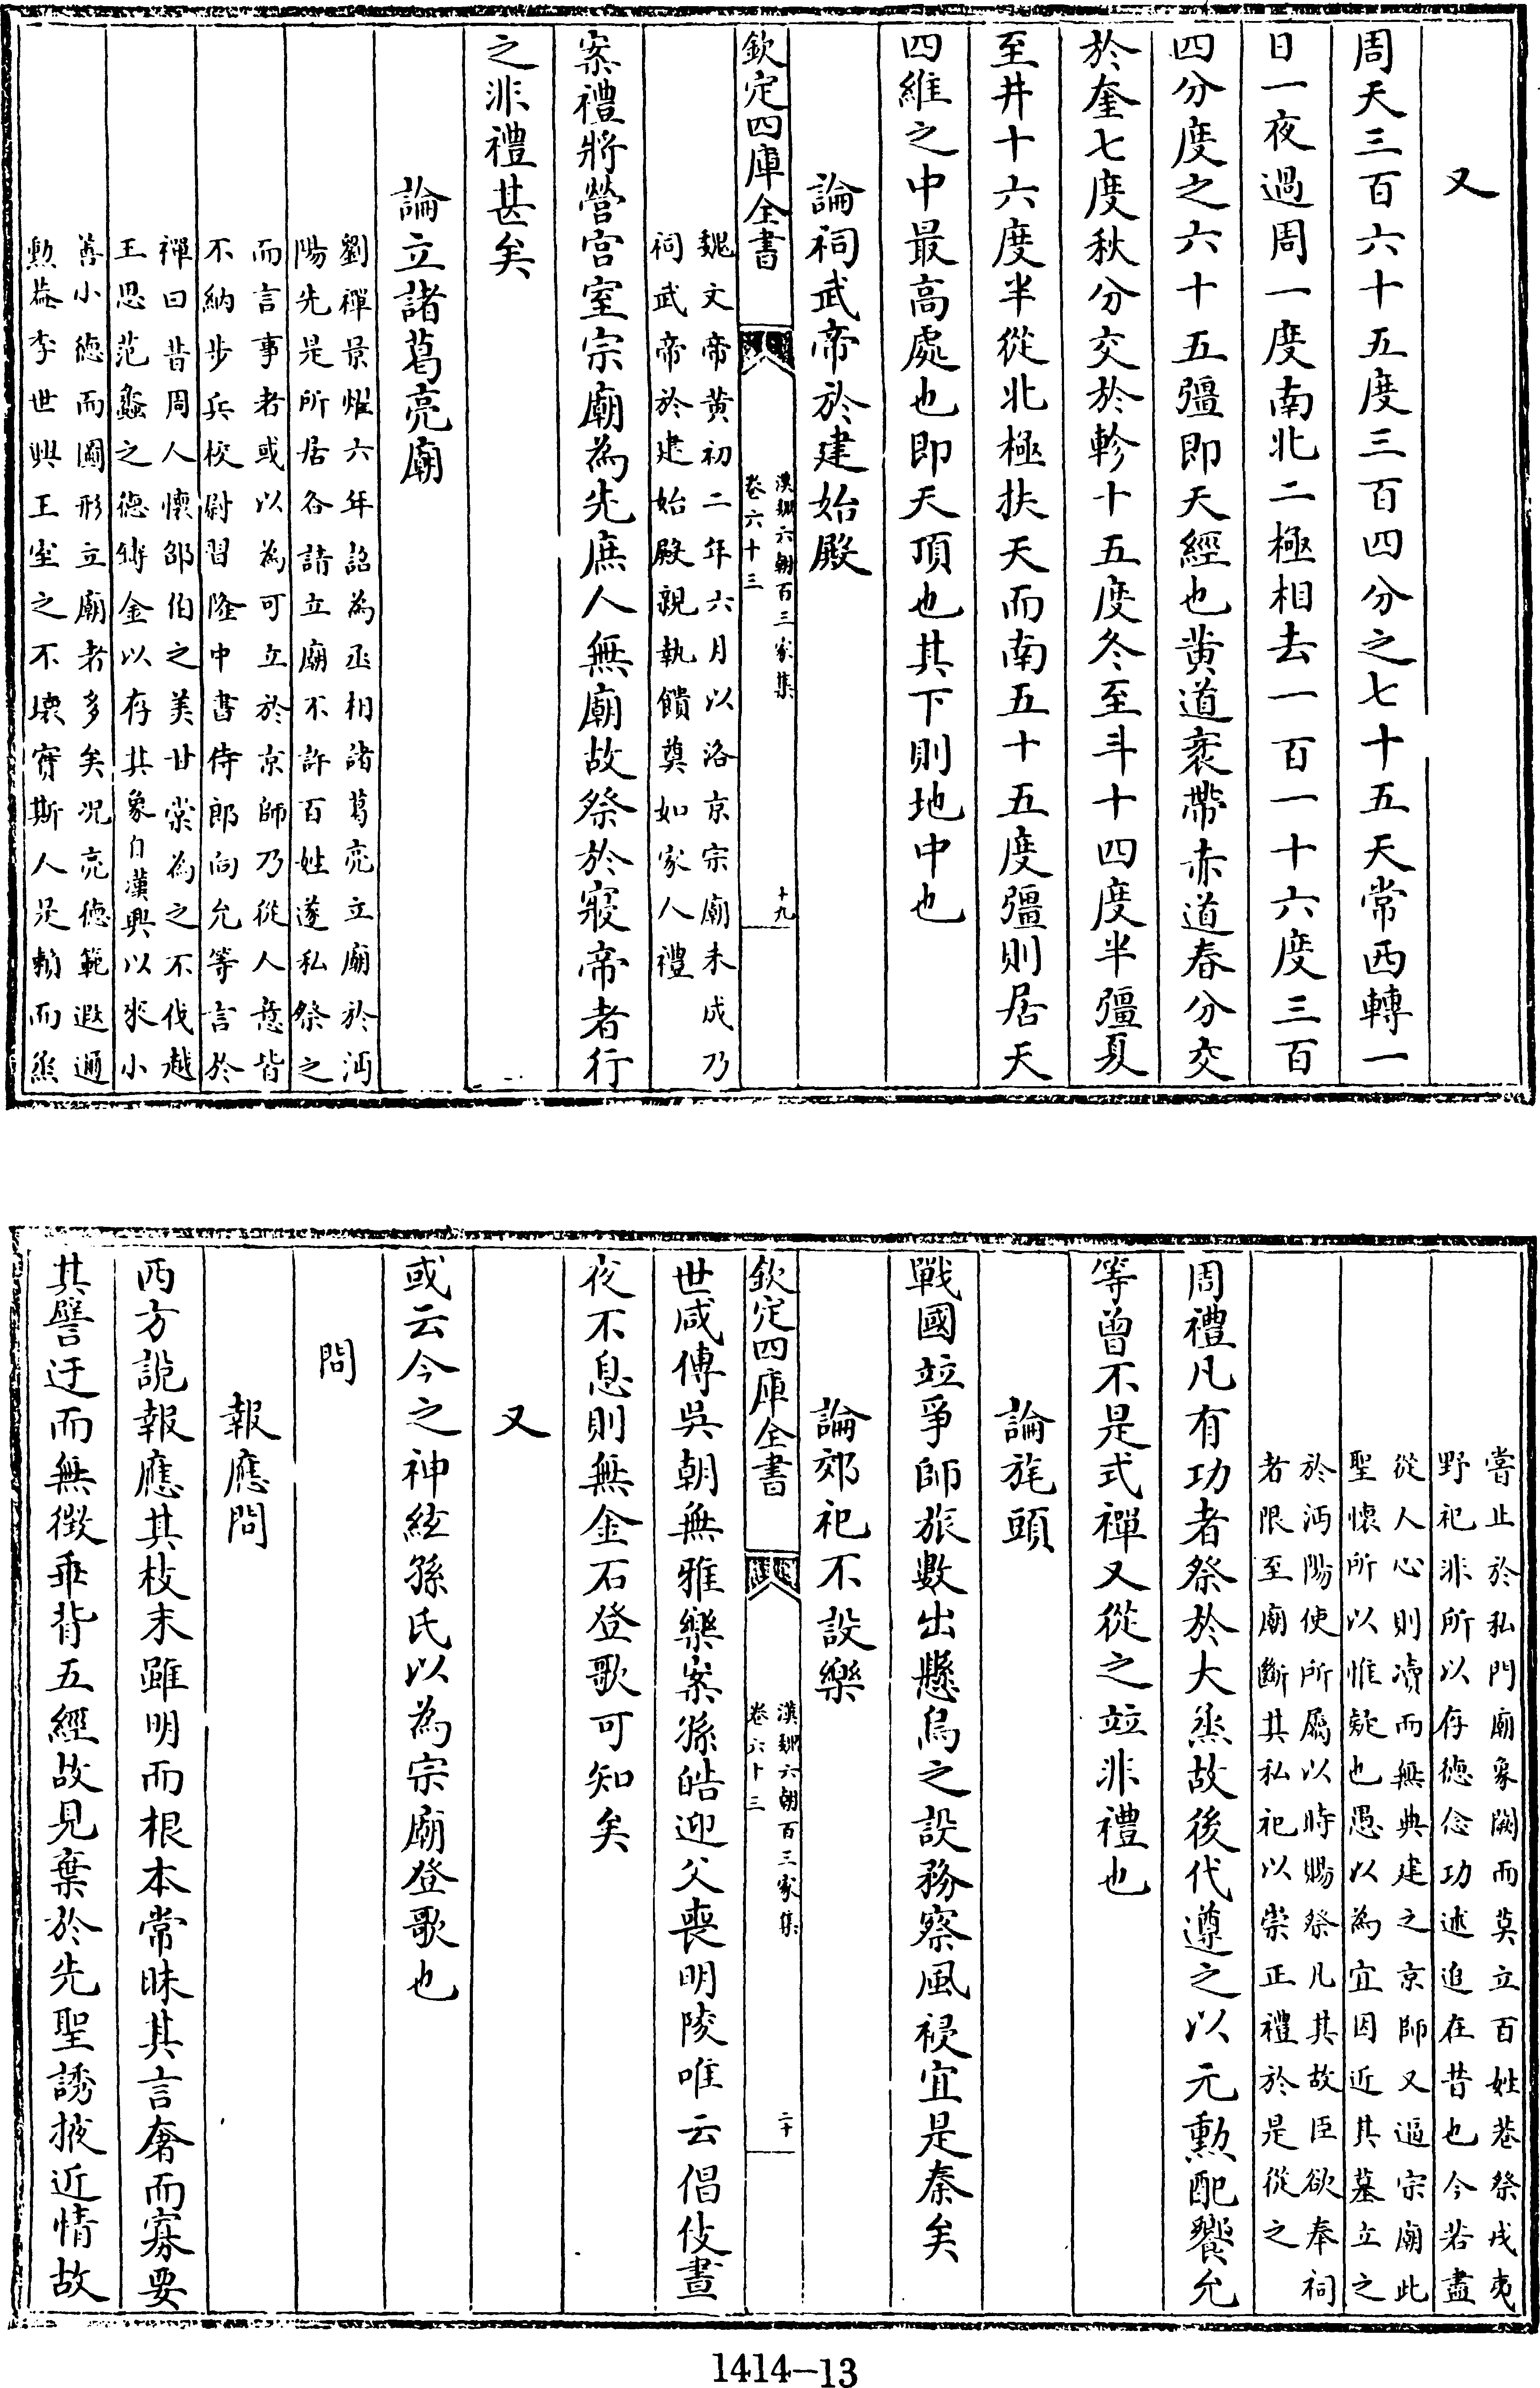 又
周天三百六十五度三百四分之七十五天常西轉一
日一夜過周一度南北二極相去一百一十六度三百
四分度之六十五彊即天經也黄道袤帶赤道春分交
於奎七度秋分交於軫十五度冬至斗十四度半彊夏
至井十六度半從北極扶天而南五十五度彊則居天
四維之中最高處也即天頂也其下則地中也
論祠武帝於建始殿
欽定四庫全書
漢魏六朝百三家集
卷六十三
十九
魏文帝黄初二年六月以洛京宗廟未成乃
祠武帝於建始殿親執饋奠如家人禮
案禮將營宫室宗廟為先庶人無廟故祭於寢帝者行
之非禮甚矣
論立諸葛亮廟
劉禪景燿六年詔為丞相諸葛亮立廟於沔
陽先是所居各請立廟不許百姓遂私祭之
而言事者或以為可立於京師乃從人意皆
不納步兵校尉習隆中書侍郎向允等言於
禪曰昔周人懷邵伯之美甘棠為之不伐越
王思范蠡之德鑄金以存其象自漢興以來小
善小德而圖形立廟者多矣况亮德範遐邇
勲葢季世興王室之不壞實斯人是賴而烝
嘗止於私門廟象闕而莫立百姓巷祭戎夷
野祀非所以存德念功述追在昔也今若盡
從人心則瀆而無典建之京師又逼宗廟此
聖懷所以惟疑也愚以為宜因近其墓立之
於沔陽使所屬以時賜祭凡其故臣欲奉祠
者限至廟斷其私祀以崇正禮於是從之
周禮凡有功者祭於大烝故後代遵之以元勲配饗允
等曾不是式禪又從之竝非禮也
論旄頭
戰國竝爭師旅數出懸烏之設務察風祲宜是秦矣
論郊祀不設樂
欽定四庫全書
漢魏六朝百三家集
卷六十三
二十
世咸傳吳朝無雅樂案孫皓迎父喪明陵唯云倡伎晝
夜不息則無金石登歌可知矣
又
或云今之神絃孫氏以為宗廟登歌也
問
報應問
西方説報應其枝末雖明而根本常昧其言奢而寡要
其譬迂而無徴乖背五經故見棄於先聖誘掖近情故
1414-13